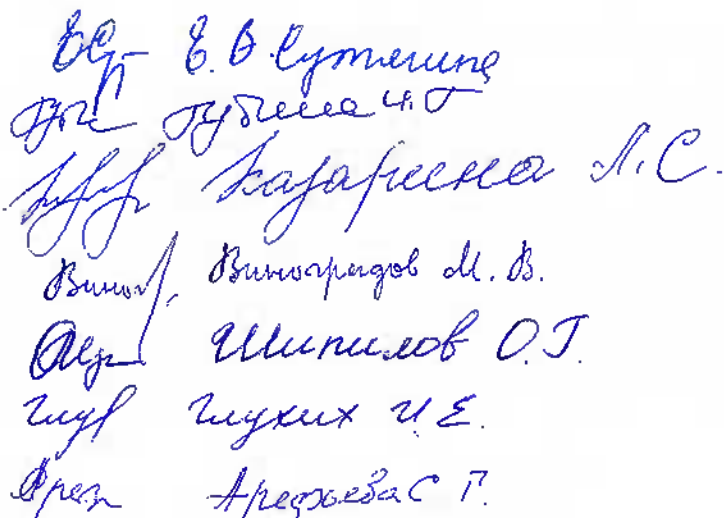 Е.В. Сутягина
Губина И.Г
Казарина Л.С.
Виног. Виноградов М.В.
Шипилов О.Г.
Глух Глухих И.Е.
Арефьева С Г.